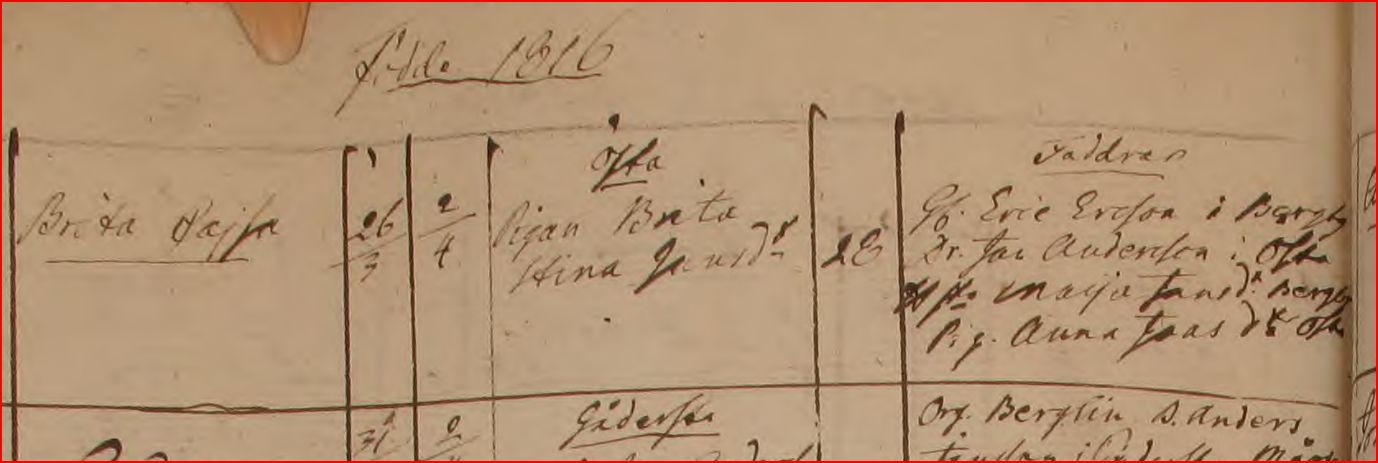 Födde 1816
Brita Cajsa
26/3
2/4
Ofta
Pigan Brita
Stina Jansdr
28
Faddrar
Gf. Eric Ersson i Bergby
Dr. Jan Andersson i Ofta
Maija Jansdr. Bergby
Pig. Anna Jans dr Ofta
31
2
Gådersta
Org. Berglin D. Anders